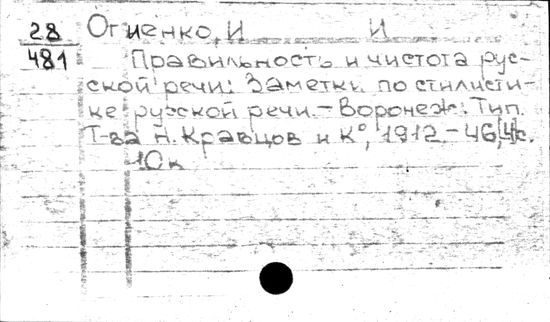 28
481
Огиенко, И И
Правильность и чистота рус-
ской речи: Заметки по стилисти-
ке русской речи. - Воронеж: Тип.
Т-ва Н. Кравцов и К°, 1912. - 46,[4]с.
10к